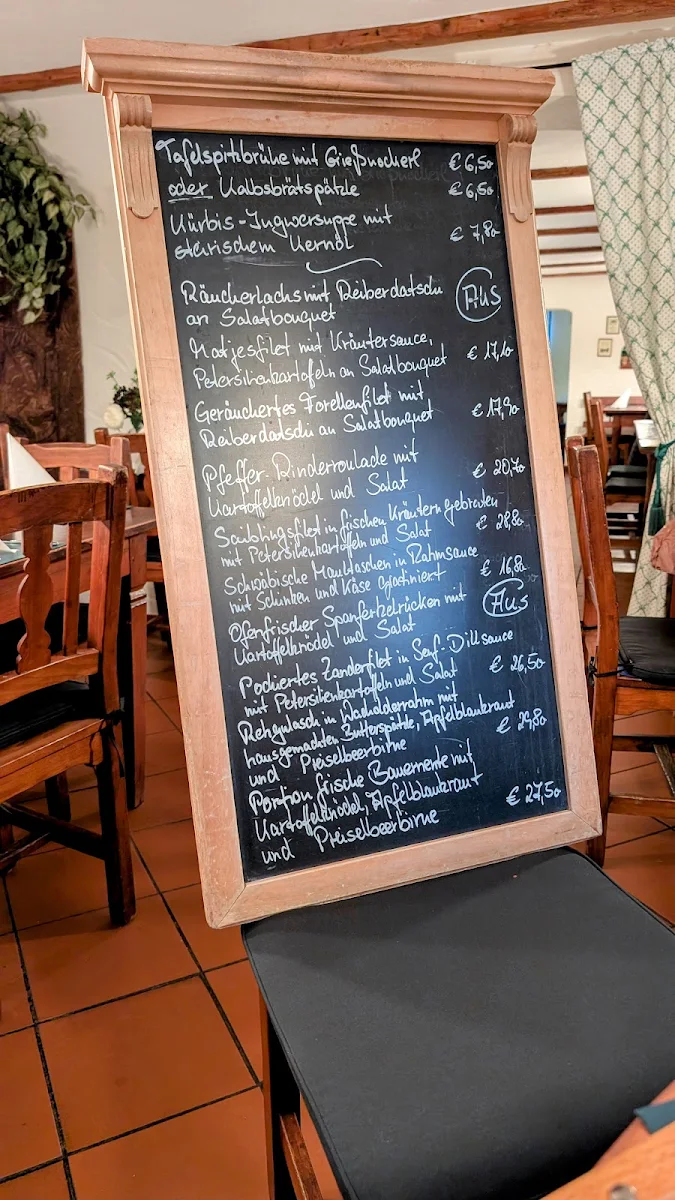 Tafelspitzbrühe mit Grießnockerl € 6,50
oder Kalbsbrätspätzle € 6,50
Kürbis-Ingwersuppe mit
steirischem Kernöl € 7,80
Räucherlachs mit Reiberdatschi
an Salatbouquet Aus
Matjesfilet mit Kräutersauce,
Petersilienkartofeln an Salatbouquet € 17,10
Geräuchertes Forellenfilet mit
Reiberdatschi an Salatbouquet € 17,90
Pfeffer-Rinderroulade mit
Kartoffelknödel und Salat € 20,70
Saiblingsfilet in frischen Kräutern gebraten
mit Petersilienkartofeln und Salat € 28,80
Schwäbische Maultaschen in Rahmsauce
mit Schinken und Käse gratiniert € 16,80
Ofenfrischer Spanferkelrücken mit
Kartoffelknödel und Salat Aus
Pochiertes Zanderfilet in Senf-Dillsauce
mit Petersilienkartofeln und Salat € 26,50
Rehgulasch in Wacholderrahm mit
hausgemachten Butterspätzle, Apfelblaukraut
und Preiselbeerbirne € 24,80
Portion frische Bauernente mit
Kartoffelknödel, Apfelblaukraut
und Preiselbeerbirne € 27,50